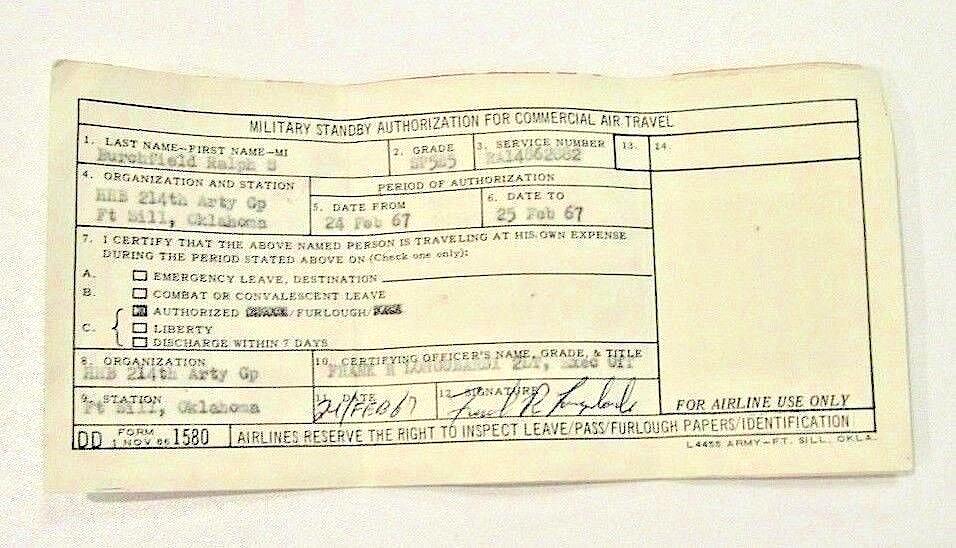 MILITARY STANDBY AUTHORIZATION FOR COMMERCIAL AIR TRAVEL
1. LAST NAME-FIRST NAME-MI
Burchfield Ralph S
2. GRADE
SP5E5
3. SERVICE NUMBER
RA14662662
13.
14.
4. ORGANIZATION AND STATION
HHB 214th Arty Gp
Ft Sill, Oklahoma
PERIOD OF AUTHORIZATION
5. DATE FROM
24 Feb 67
6. DATE TO
25 Feb 67
7. I CERTIFY THAT THE ABOVE NAMED PERSON IS TRAVELING AT HIS OWN EXPENSE
DURING THE PERIOD STATED ABOVE ON (Check one only):
A. EMERGENCY LEAVE, DESTINATION
B. COMBAT OR CONVALESCENT LEAVE
AUTHORIZED /FURLOUGH/
C. LIBERTY
DISCHARGE WITHIN 7 DAYS
8. ORGANIZATION
HHB 214th Arty Gp
10. CERTIFYING OFFICER'S NAME, GRADE, & TITLE
FRANK R 2LT, Exec Off
9. STATION
Ft Sill, Oklahoma
11. DATE
21 FEB 67
12. SIGNATURE
FOR AIRLINE USE ONLY
DD FORM 1 NOV 66 1580
AIRLINES RESERVE THE RIGHT TO INSPECT LEAVE/PASS/FURLOUGH PAPERS/IDENTIFICATION
L4455 ARMY-FT. SILL, OKLA.